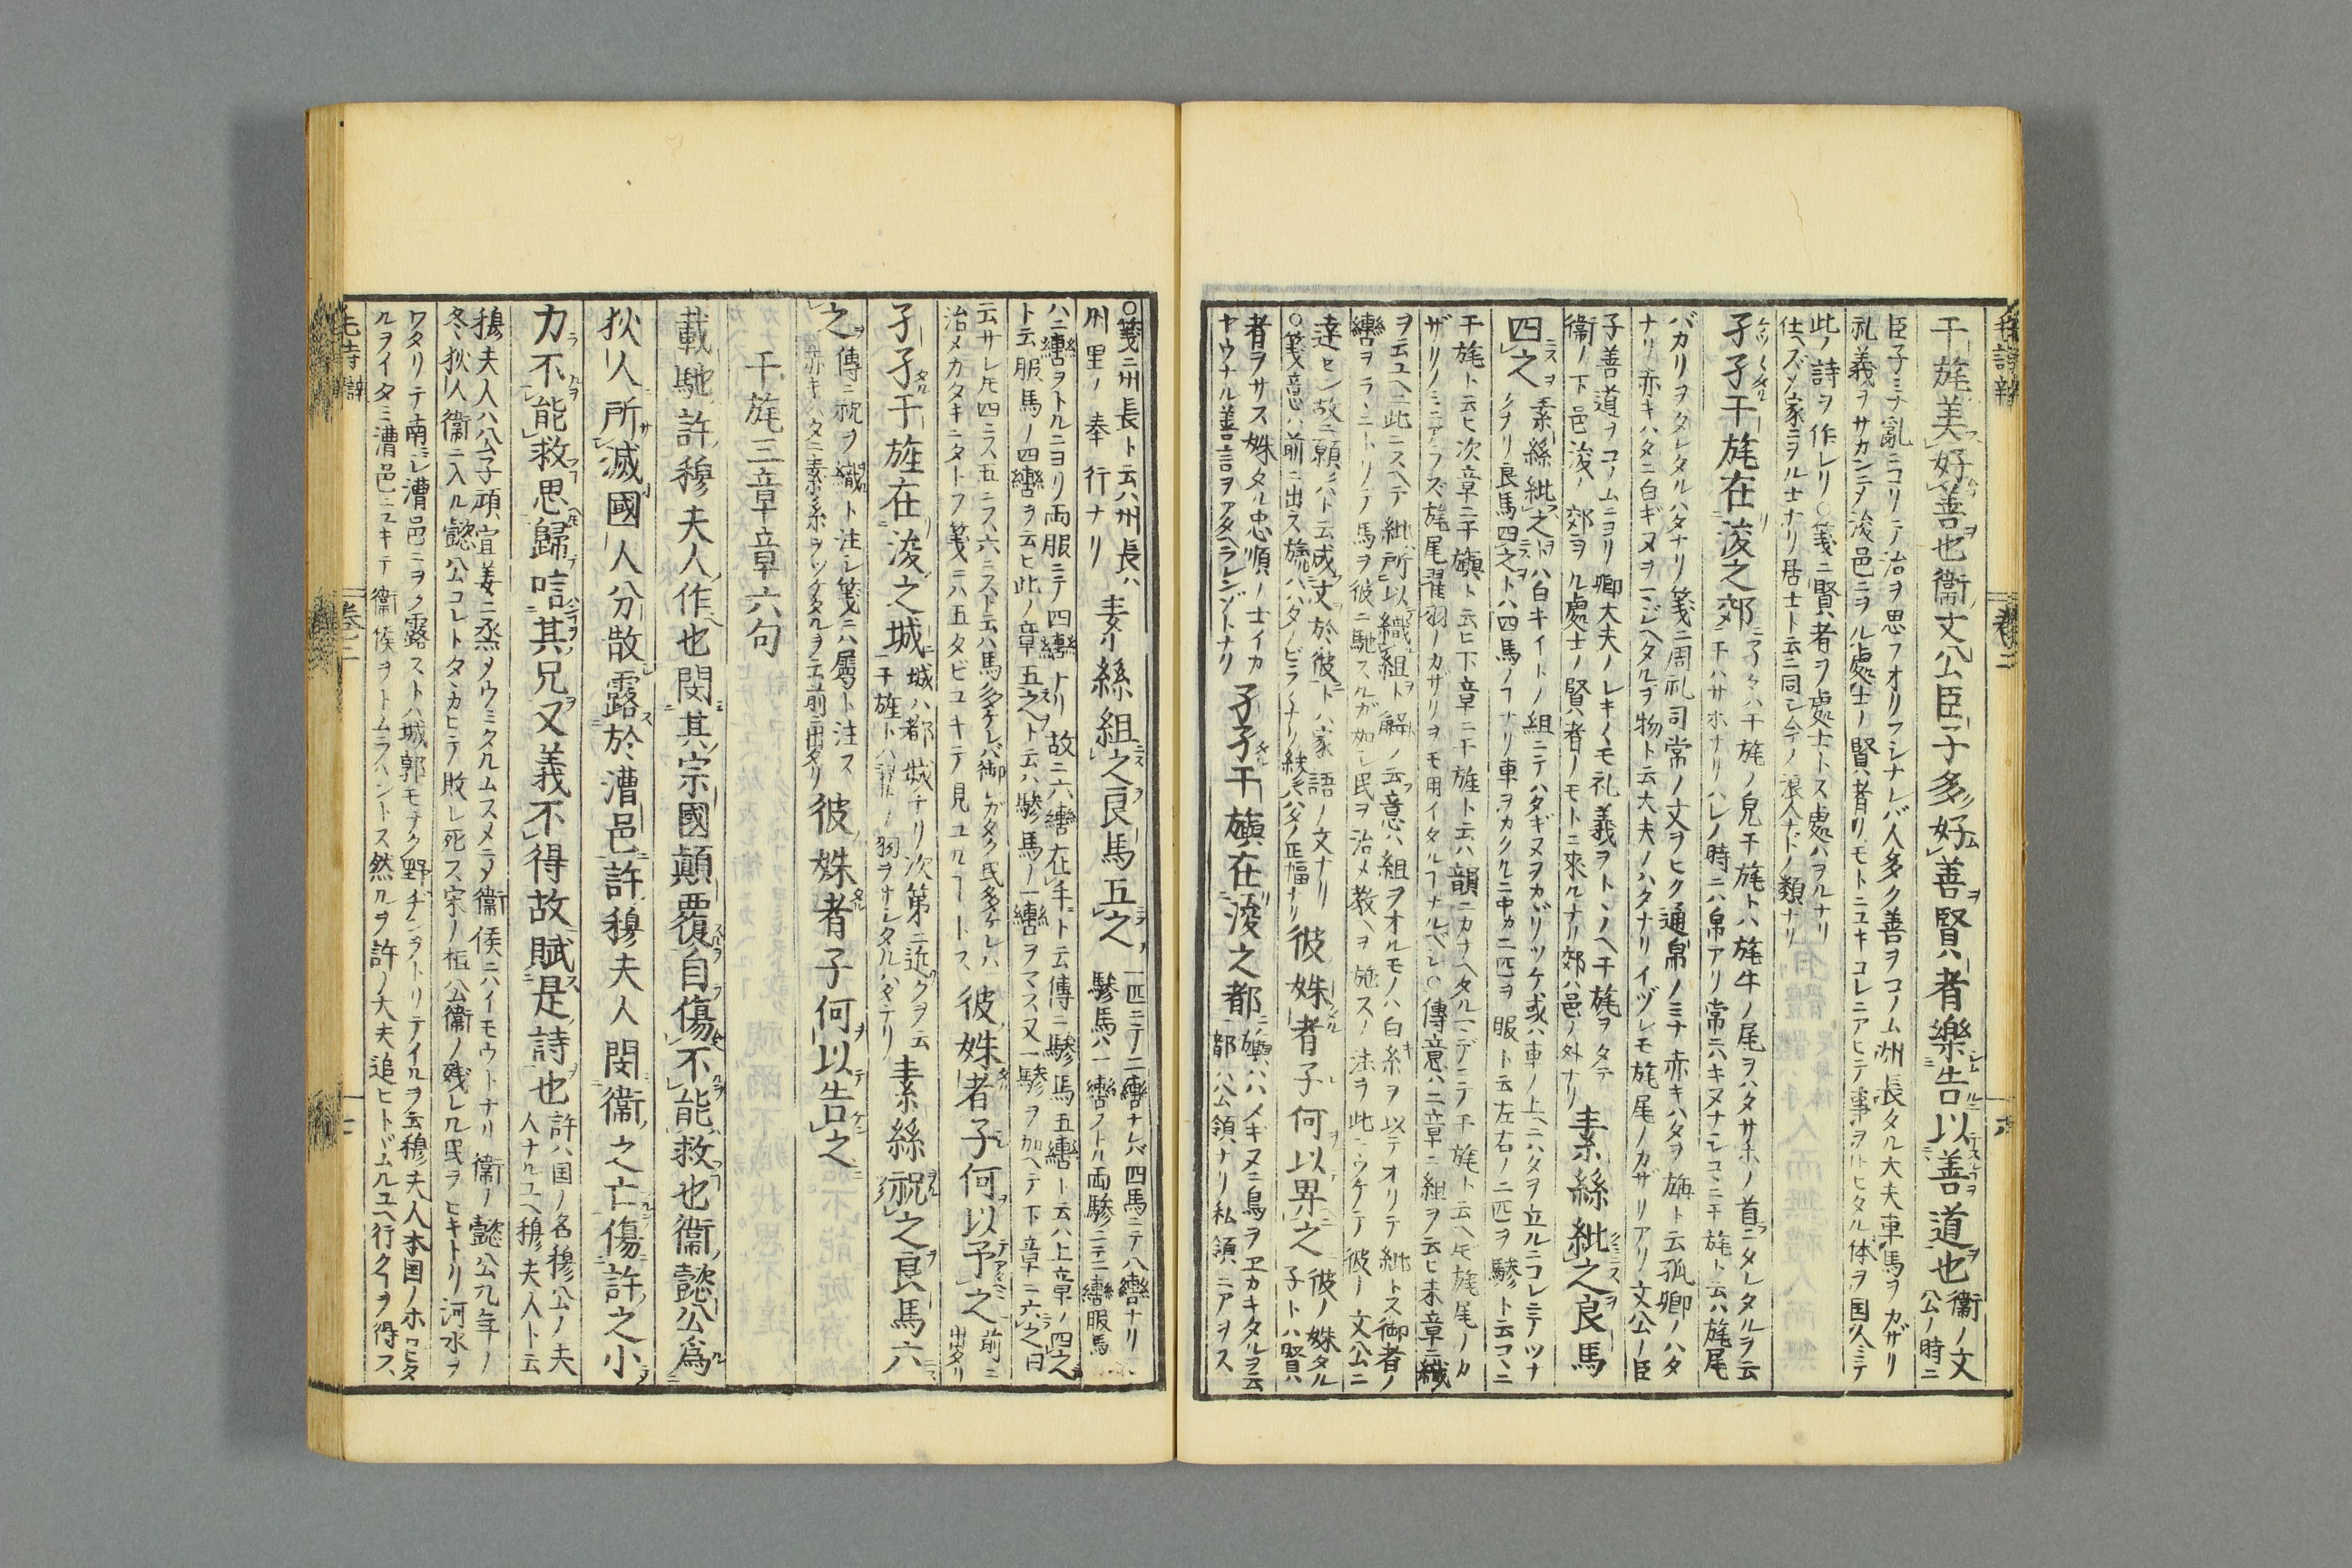 干旄美好善也衞文公臣子多好善賢者樂告以善道也 衞ノ文
公ノ時ニ
臣子ミナ亂ニコリテ治ヲ思フオリフシナレバ人多ク善ヲコノム州長タル大夫車馬ヲカザリ
礼義ヲサカンニメ浚邑ニヲル處士ノ賢者リモトニユキコレニアヒテ事ヲトヒタル体ヲ国人ミテ
此ノ詩ヲ作レリ○箋ニ賢者ヲ處士トス處ハヲルナリ
仕ヘズメ家ニヲル士ナリ居士ト云ニ同シ今ノ浪人ナドノ類ナリ
孑孑干旄在浚之郊
バカリヲタレタルハタナリ箋ニ周礼司常ノ文ヲヒク通帛ノミナ赤キハタヲ旃ト云孤卿ノハタ
ナリ赤キハタニ白ギヌヲマジヘタルヲ物ト云大夫ノハタナリイヅレモ旄尾ノカザリアリ文公ノ臣
子善道ヲコノムニヨリ卿大夫ノレキノモ礼義ヲトノヘ干旄ヲタテ
衞ノ下邑浚ノ郊ヲル處士ノ賢者ノモトニ來ルナリ郊ハ邑ノ外ナリ
素絲紕之良馬
四之
素絲紕之トハ白キイトノ組ニテハタギヌヲカガリツケ或ハ車ノ上ニハタヲ立ルニコレニテツナ
クナリ良馬四之トハ四馬ノフナリ車ヲカクルニ中カニ匹ヲ服ト云左右ノ二匹ヲ驂ト云コヽニ
干旄ト云ヒ次章ニ干旟ト云ヒ下章ニ干旌ト云ハ韻ニカナヘタルマデニテ干旄ト云ヘドモ旄尾ノカ
ザリノミニアラズ旄尾翟羽ノカザリヲモ用イタルフナルベシ○傳意ハ二章ニ組ヲ云ヒ末章ニ織
ヲ云ユヘニ此ニスヘテ紕所以織組ト解ノ云意ハ組ヲオルモノハ白キ糸ヲ以テオリテ紕トス御者ノ
轡ヲラニトリテ馬ヲ彼ニ馳スルガ如シ民ヲ治メ教ヘヲ施スノ法ヲ此ニウケテ彼ノ文公ニ
達セン故ニ願ハト云成文於彼トハ家語ノ文ナリ
○箋意ハ前ニ出ス旒ハハタノビラナリ縿ハハタノ正幅ナリ
彼姝者子何以畀之
彼ノ姝タル
子トハ賢
者ヲサス姝タル忠順ノ士イカ
ヤウナル善言ヲアタヘラレンゾトナリ
孑孑干旟在浚之都
旟ハハメギヌニ鳥ヲヱカキタルヲ云
都ハ公領ナリ私領ニアラス
○箋ニ州長ト云ハ州長ハ
州里ノ奉行ナリ
素絲組之良馬五之
一匹ニテノ二轡ナレバ四馬ニテ八轡ナリ
驂馬ハ一轡ノトル両驂ニテ二轡服馬
ハ二轡ヲトルニヨリ両服ニテ四轡ナリ故ニ六轡在手ト云傳ニ驂馬五轡ト云ハ上章ノ四之
ト云服馬ノ四轡ヲ云ヒ此ノ章五之ト云ハ驂馬ノ一轡ヲマス又一驂ヲ加ヘテ下章ニ六之曰
云サレ𪜈四ニス五ニス六ニスト云ハ馬多ケレバ御レガタク民多ケレハ
治メカタキニタトフ箋ニハ五タビユキテ見ユルフトス
彼姝者子何以予之
前ニ
出タリ
孑孑干旌在浚之城
城ハ都城ナリ次第ニ近クヲ云
干旌トハ翟ノ羽ヲサシタルハタナリ
素絲祝之良馬六
之
傳ニ祝ヲ織ト注シ箋ニハ屬ト注ス
赤キハタニ素糸ヲツケタルヲ云前ニ出タリ
彼姝者子何以告之
干旄三章章六句
載馳許穆夫人作也閔其宗國顚覆自傷不能救也衞懿公爲
狄人所滅國人分散露於漕邑許穆夫人閔衞之亡傷許之小
力不能救思歸唁其兄又義不得故賦是詩也
許ハ国ノ名穆公ノ夫
人ナルユヘ穆夫人ト云
穆夫人ハ公子頑宣姜ニ烝メウミタルムスメニメ衞侯ニハイモウトナリ衞ノ懿公九年ノ
冬狄人衞ニ入ル懿公コレトタヽカヒテ敗レ死ス宋ノ桓公衞ノ残レル民ヲヒキトリ河水ヲ
ワタリテ南シ漕邑ニヲク露ストハ城郭モナク野ヂンヲトリテイルヲ云穆夫人本国ノホロヒタ
ルヲイタミ漕邑ニユキテ衞侯ヲトムラハントス然ルヲ許ノ大夫追ヒトドムルユヘ行クフヲ得ス
毛詩辯
卷二